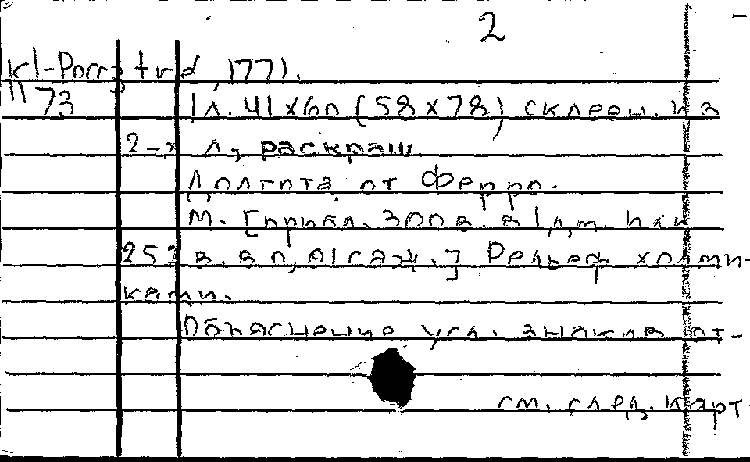 2
trd, 1771.
К1-Росс 3
11 73
1 л. 41х60 (58х78) склеен. из
2-х л., раскраш.
Долгота от Ферро.
М. [прибл. 300 в. в 1 д,m. или
252 в. в 0,01 саж.] Рельеф холми-
ками.
Объяснение усл. знаков от-
см. след. карт